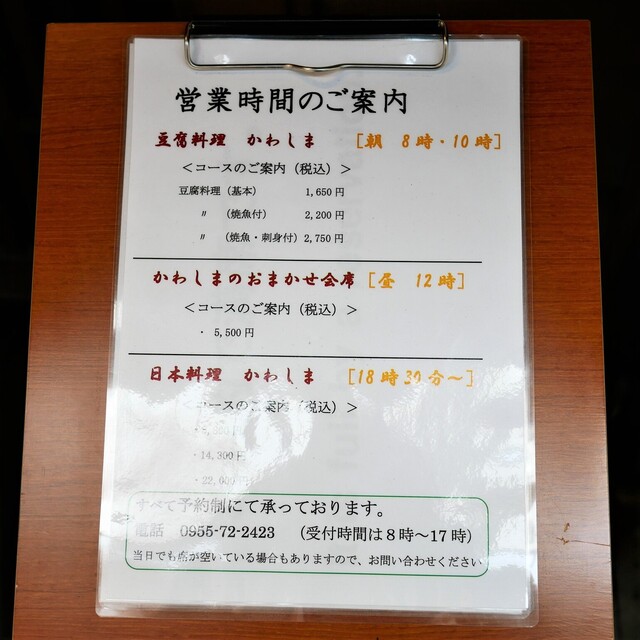 営業時間のご案内
豆腐料理 かわしま [朝 8時・10時]
<コースのご案内(税込)>
豆腐料理(基本) 1,650円
〃 (焼魚付) 2,200円
〃 (焼魚・刺身付) 2,750円
かわしまのおまかせ会席 [昼 12時]
<コースのご案内(税込)>
・ 5,500円
日本料理 かわしま [18時30分~]
コースのご案内(税込)>
・14,300円
・22,000円
すべて予約制にて承っております。
電話 0955-72-2423 (受付時間は8時~17時)
当日でも席が空いている場合もありますので、お問い合わせください